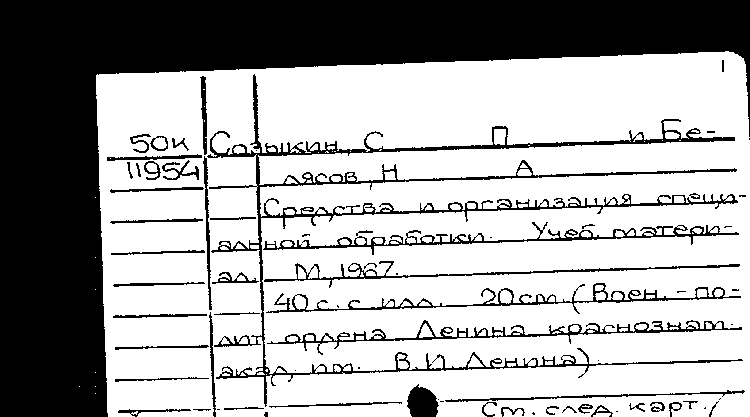 50к Созыкин, С П и Бе-
11954 лясов, Н А
Средства и организация специ-
альной обработки. Учеб. матери-
ал. М., 1967.
40 с. с илл. 20 см. (Воен.-по-
лит. ордена Ленина краснознам.
акад. им. В.И. Ленина)
См. след. карт./